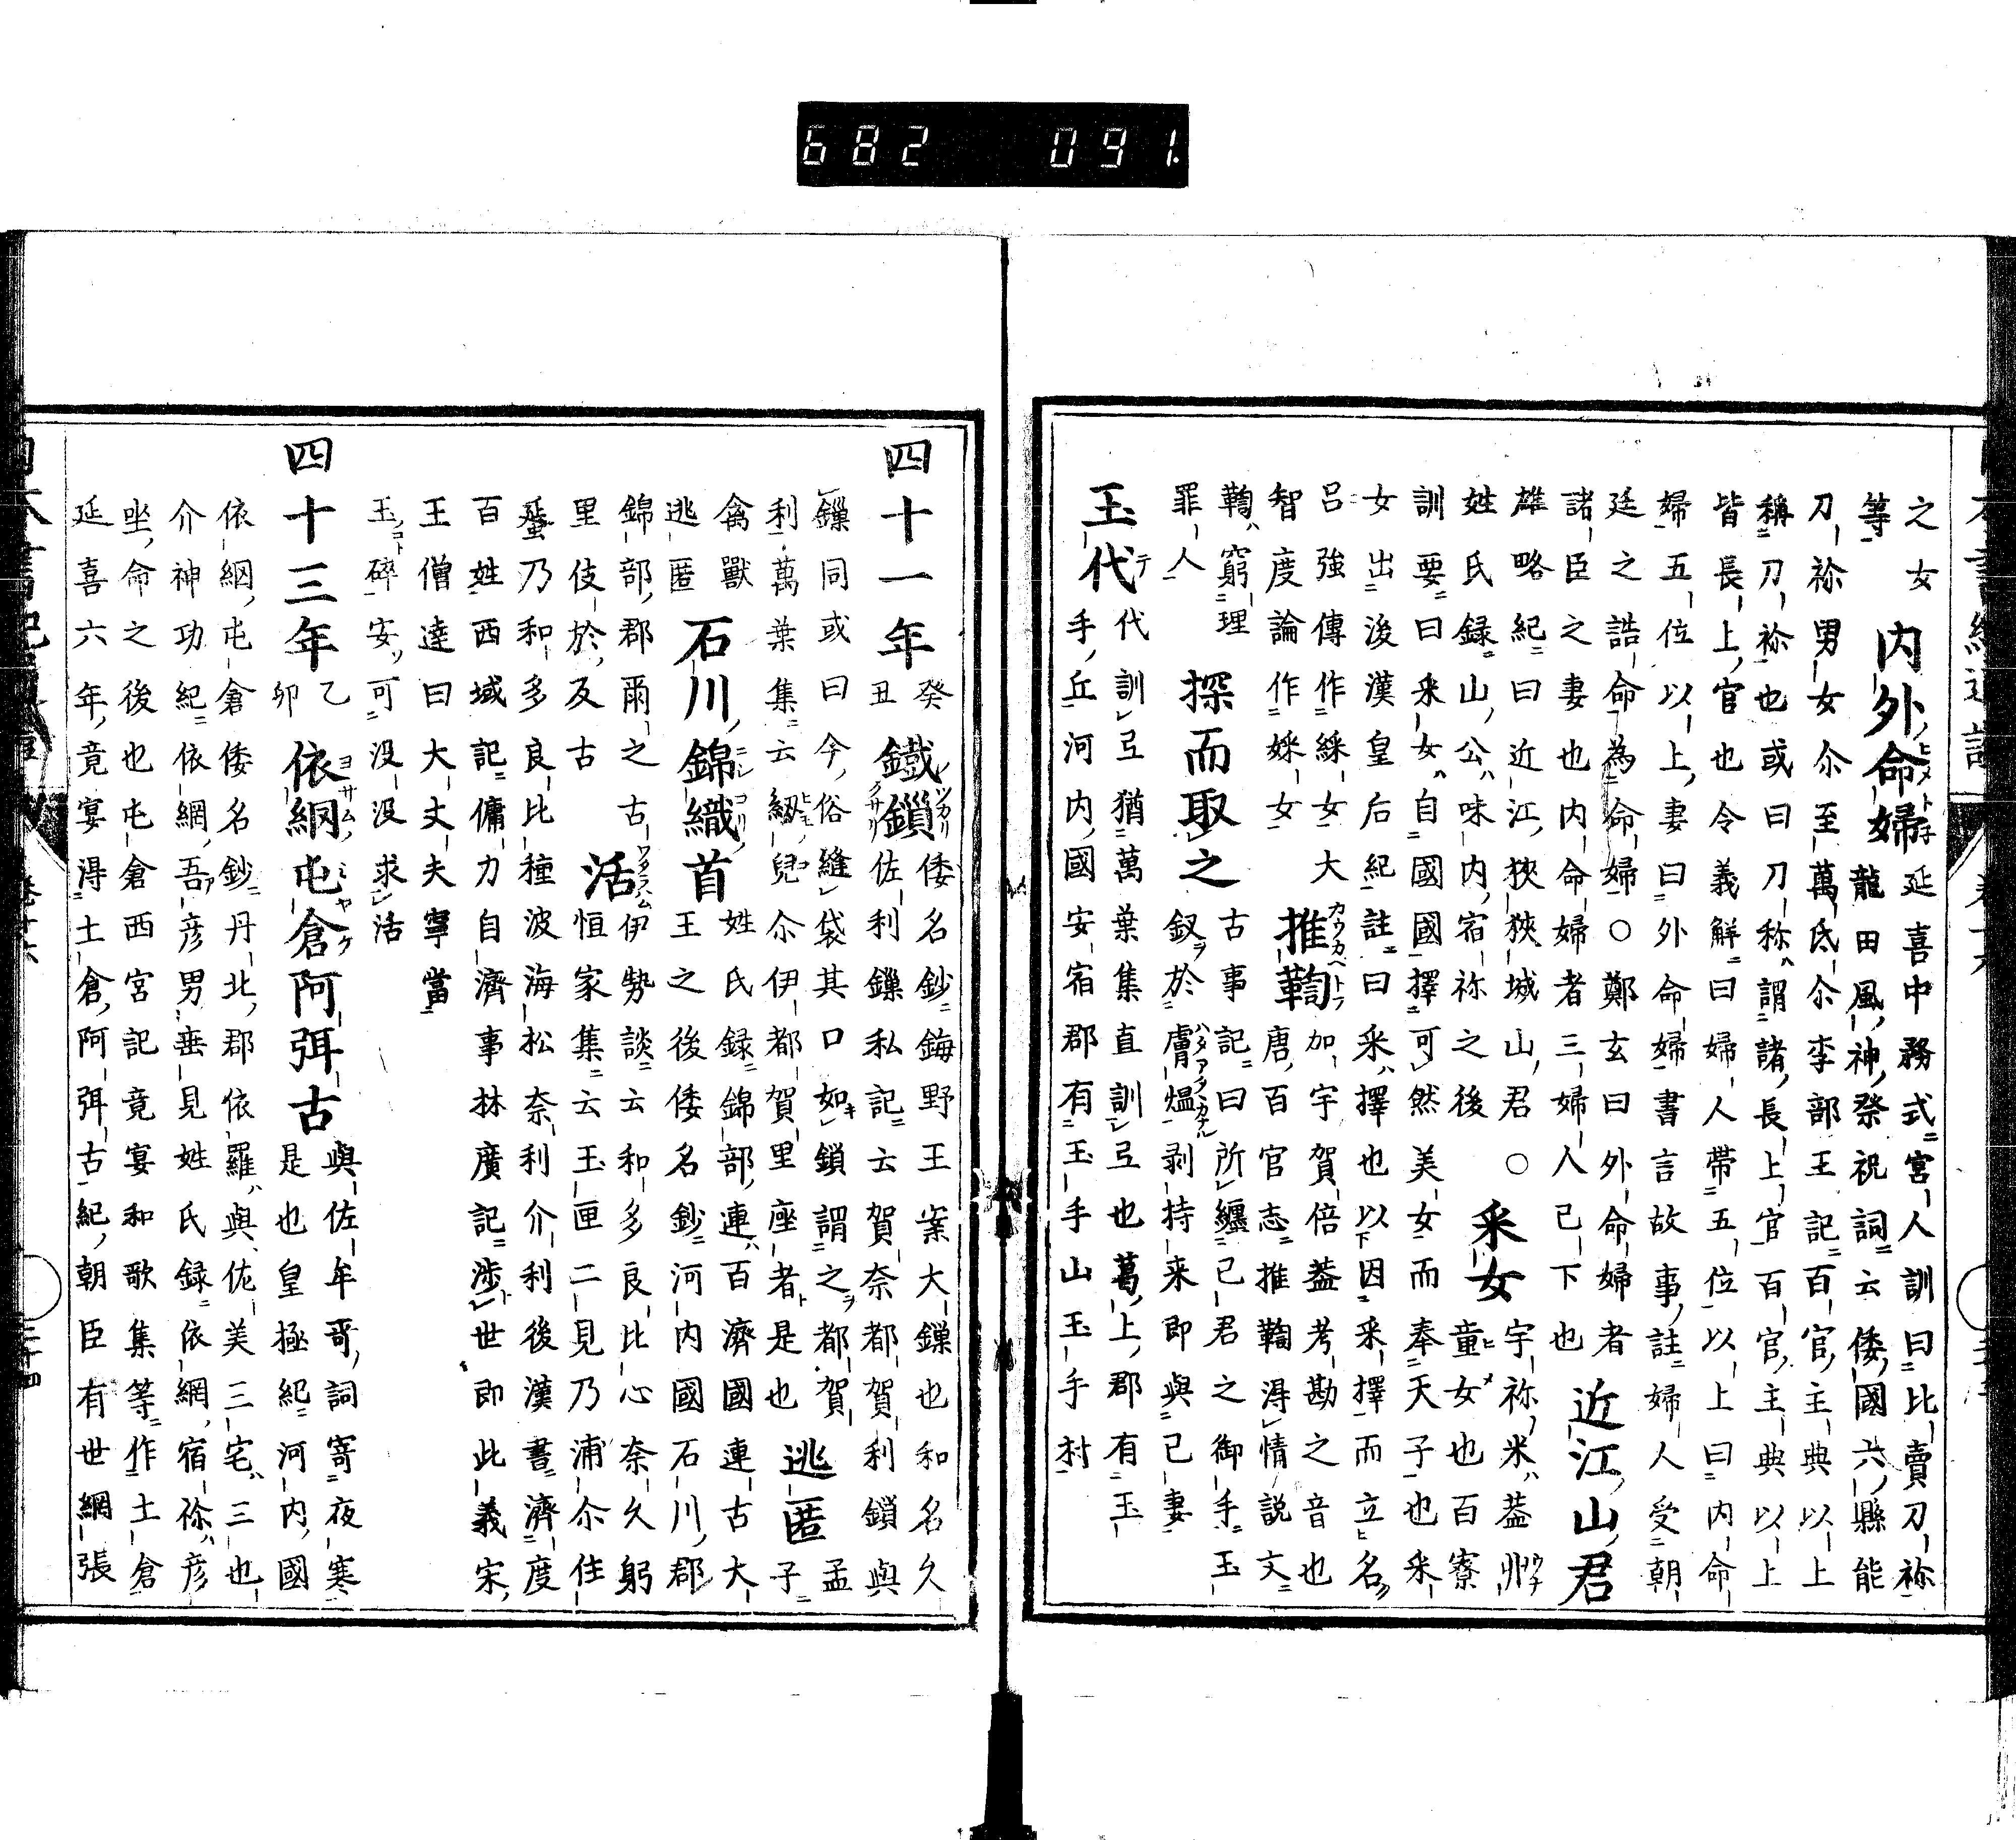 682 091.
之女　内外命婦　延喜中務式宮人訓曰比賣刀祢
等　龍田風神祭祝詞云倭國六縣能
刀祢男女尒至萬氐尒李部王記百官主典以上
稱刀祢也或曰刀称謂諸長上官百官主典以上
皆長上官也令義解曰婦人帶五位以上曰内命
婦五位以上妻曰外命婦書言故事註婦人受朝
廷之誥命為命婦○鄭玄曰外命婦者
諸臣之妻也内命婦者三婦人已下也　近江山君
雄略紀曰近江狹狹城山君○　采女　宇祢米蓋
姓氏録山公味内宿祢之後　童女也百寮
訓要曰采女自國國擇可然美女而奉天子也采
女出後漢皇后紀註曰采擇也以因采擇而立名
呂強傳作綵女大　推鞫　加宇賀倍蓋考勘之音也
智度論作婇女　唐百官志推鞫得情説文
鞫窮理　探而取之　古事記曰所纏已君之御手玉
罪人　釼於膚熅剥持来即與己妻
玉代　代訓弖猶萬葉集直訓弖也葛上郡有玉
手丘河内國安宿郡有玉手山玉手村
四十一年　癸丑　鐵鎖　倭名鈔鋂野王案大鏁也和名久
佐利鏁私記云賀奈都賀利鎖與
鏁同或曰今俗縫袋其口如鎖謂之都賀　逃匿　孟
利萬葉集云紐兒尒伊都賀里座者是也　子
禽獸　石川錦織首　姓氏録錦部連百濟國連古大
逃匿　王之後倭名鈔河内國石川郡
錦部郡爾之古　活　伊勢談云和多良比心奈久躬
里伎於及古　恒家集云玉匣二見乃浦尒住
蜑乃和多良比種波海松奈利介利後漢書濟度
百姓西域記傭力自濟事林廣記渉世即此義宋
王僧達曰大丈夫寧當
玉碎安可没没求活
四十三年　乙卯　依網屯倉阿弭古　與佐牟哥詞寄夜寒
是也皇極紀河内國
依網屯倉倭名鈔丹北郡依羅與佐美三宅三也
介神功紀依網吾彦男垂見姓氏録依網宿祢彦
坐命之後也屯倉西宮記竟宴和歌集等作土倉
延喜六年竟宴得土倉阿弭古紀朝臣有世網張